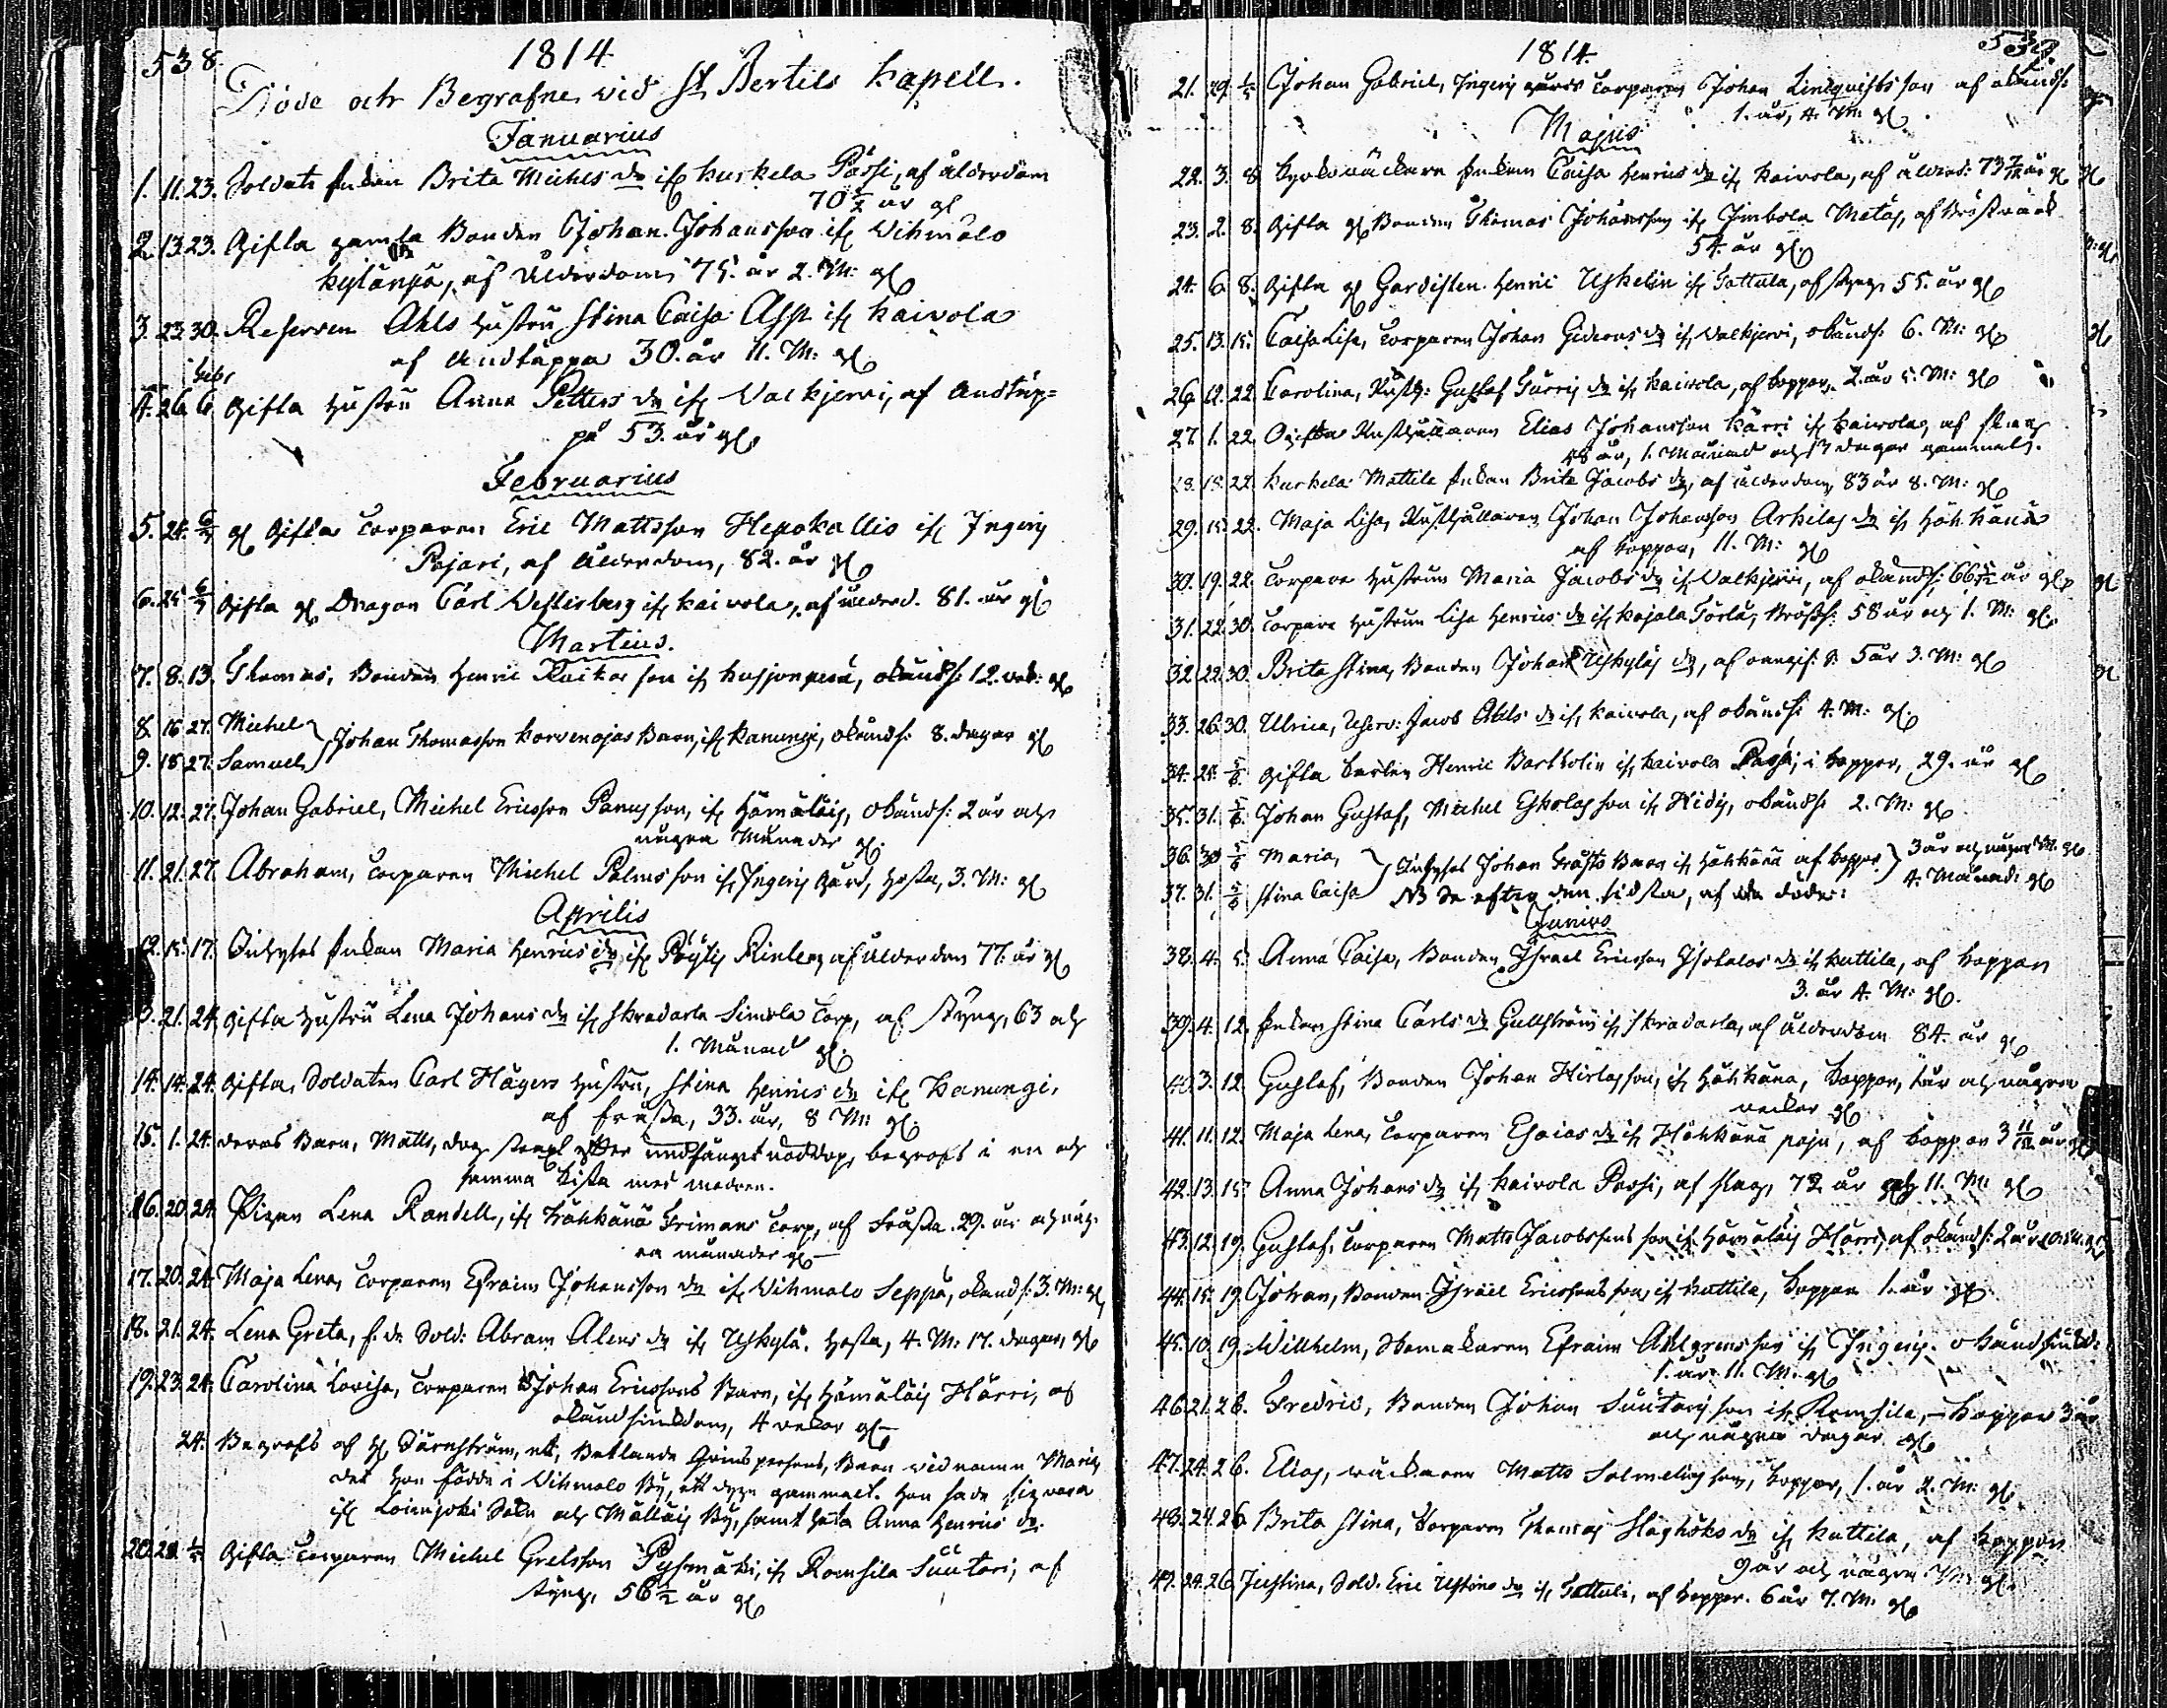 538.
1814
Döde och Begrafne, vid St Bertils Kapell.
Januarius
1. 11. 23. Soldats Enkan Brita Michels dr ifr Kurkela Påssi, af ålderdom
70 1/2 år
2. 13. 23. Gifta gamla Bonden Johan Johansson ifr Vihmalo
Kylänpä, af Ålderdom 75. år 2. M:
3. 23. 30. Reserven Ahls Hustru Stina Caisa ifr Kaivola
af Andtäppa 30. år 11. M:
Febr
4. 26. 6. Gifta Hustru Anna Petters dr ifr Valkjervi, af Andtäp=
pa 53. år
Februarius
5. 24. 6/3 Gifta Torparen Eric Mattsson Hepokallio ifr Ingeris
Pajari, af Ålderdom, 82. år
6. 25. 6/3 Gifta Dragon Carl Vesterberg ifr Kaivola, af ålderd. 81. år
Martius.
7. 8. 13. Thomas, Bonden Henric son ifr Kusjonperä, okänds: 12. vek:
8. 16. 27. Michel
9. 18. 27. Samuel, Johan Thomasson Korvenojas Barn, ifr Kanungi, okänds: 8. dagar
10. 12. 27. Johan Gabriel, Michel Ericsson Panus son, ifr Hämäläis, Okänds: 2 år och
några Månader
11. 21. 27. Abraham, Torparen Michel Palms son ifr Ingeris Gård, Hosta, 3. M:
Aprilis
12. 15. 17. Inhyses Enkan Maria Henrics dr ifr Pöytis af ålderdom 77. år
13. 21. 24. Gifta Hustru Lena Johans dr ifr Skradarla Simola Torp, af Styng, 63 och
1. Månad
14. 14. 24. Gifta, Soldaten Carl Hägers Hustru, Stina Henrics dr ifr Kanungi,
af Frossa, 33. år, 8 M:
15. 1. 24. deras Barn, Matts, dog strax efter undfånget nöddop, begrofs i en och
samma Kista med modren.
16. 20. 24. Pigan Lena Randell, ifr Höhkänä Grimans Torp, af Frossa. 29. år och någ-
ra månader
17. 20. 24. Maja Lena, Torparen Efraim Johansson dr ifr Vihmalo Seppä, okänds: 3. M:
18. 21. 24. Lena Greta, f. d. Sold: Abram Alens dr ifr Uskylä. Hosta, 4. M: 17. dagar,
19. 23. 24. Carolina Lovisa, Torparen Johan Ericssons Barn, ifr Hämäläis Härri, af
okänd sjukdom, 4 vekor
24. Begrofs af H Särnström, ett, Betlande Qvinspersons, Barn vid namn Maria,
det hon födde i Vihmalo By, ett dygn gammalt. Hon sade sig vara
ifr Loimjoki Sokn och Mälläis By, samt heta Anna Henrics dr.
20. 28. 1/5 Gifta Torparen Michel Grelsson Pysmäki, ifr Romsila Suutari, af
Styng, 56 1/2 år
539.
1814.
21. 29. 1/5 Johan Gabriel, Ingeris gårds Torparen Johan Lindquists son af okänds:
1. år, 4. M:
Majus
22. 3. 8. Kyrkoväktare Enkan Caisa Henrics dr ifr Kaivola, af ålderd: 73 år
23. 2. 8. Gifta Bonden Thomas Johansson ifr Jmbola Matas, af Bröstvärk
54. år
24. 6. 8. Gifta Gardisten Henric Uskelin ifr Tattula, af Styng, 55. år
25. 13. 15. Caisa Lisa, Torparen Johan Gideons dr ifr Valkjervi, okänds: 6. M:
26. 12. 22. Carolina, Rusth: Gustaf Färris dr ifr Kaivola, af koppor, 2. år 5. M:
27. 1. 22. Ogifta Rusthållaren Elias Johansson Härri ifr Kaivola, af slag
48 år, 1. Månad och 3 dagar gammal.
28. 18. 22. Kurkela Mattila Enkan Brita Jacobs dr, af ålderdom, 83 år 8. M:
29. 15. 22. Maja Lisa, Rusthållaren Johan Johansson Arkilas dr ifr Höhkänä
af koppor, 11. M:
30. 19. 22. Torpare Hustrun Maria Jacobs dr ifr Valkjervi, af okänds: 66 år
31. 22. 30. Torpare Hustrun Lisa Henrics dr ifr Kajala Förlä, Brösts: 58 år och 1. M:
32. 22. 30. Brita Stina, Bonden Johan Uskyläs dr, af 5 år 3. M:
33. 26. 30. Ulrica, Reserv: Jacob Ahls dr ifr Kaivola, af okänds: 4. M:
34. 24. 5/6 Gifta Henric Bartholin ifr Kaivola Passi, i koppor, 29. år
35. 31. 5/6 Johan Gustaf, Michel Eskolas son ifr Hidis, okänds: 2. M:
36. 30 5/6 Maria,
37. 31. 5/6 Stina Caisa Inhyses Johan Barn ifr Höhkänä af koppor. 3 år och några M:
4. Månad:
NB De efter den sidsta, af döde:
Junius
38. 4. 5. Anna Caisa, Bonden Israel Ericsson Isotalos dr ifr Kuttila, af koppor
3. år 4. M:
39. 4. 12. Enkan Stina Carls dr Gullström ifr Skradarla, af ålderdom 84. år
40. 3. 12. Gustaf, Bonden Johan son, ifr Höhkäna, koppor, 1 år och några
veckor
41. 11. 12. Maja Lena, Torparen Esaias dr ifr Höhkänä paju, af koppor 3 11/12 år
42. 13. 15. Anna Johans dr ifr Kaivola Passi, af slag, 72 år och 11. M:
43. 12. 19. Gustaf, Torparen Matts Jacobssons son ifr Hämäläis Härri, af okänds: 2 år
44. 15. 19. Johan, Bonden Israel Ericssons son, ifr Kuttila, koppor 1. år
45. 10. 19. Willhelm, Skomakaren Efraim Ahlgrens son ifr Ingeris. okänd sjukd:
1. år 11. M:
46. 21. 26. Fredric, Bonden Johan Suutaris son ifr Romsila, koppor 3 år
och några dagar.
47. 24. 26. Elias, Matts Salmelins son, koppor, 1. år 2. M:
48. 24. 26. Brita Stina, Torparen Thomas Slaghöks dr ifr Kuttila, af koppor
9 år och några M:
49. 24. 26. Justina, Sold. Eric dr ifr Tattula, af koppor. 6 år 7. M.